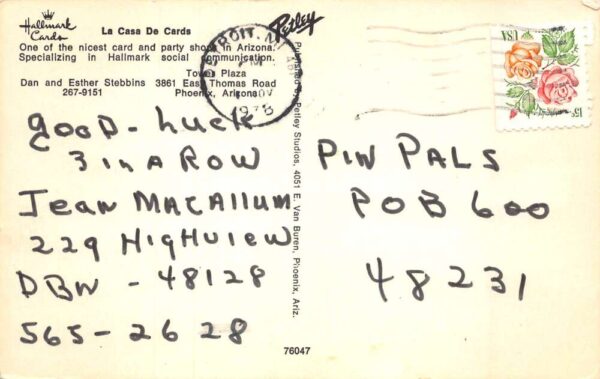 Hallmark
Cards
La Casa De Cards
One of the nicest card and party shops in Arizona.
Specializing in Hallmark social communication.
Town Plaza
Dan and Esther Stebbins 3861 East Thomas Road
267-9151 Phoenix, Arizona
Petley
Published by Petley Studios, 4051 E. Van Buren, Phoenix, Ariz.
DETROIT, MI
PM
NOV
1978
USA
15c
gooD-Luck
3 in A ROW
Jean MACALLUM
229 HigHview
DBN - 48128
565-2628
PIN PALS
POB 600
48231
76047